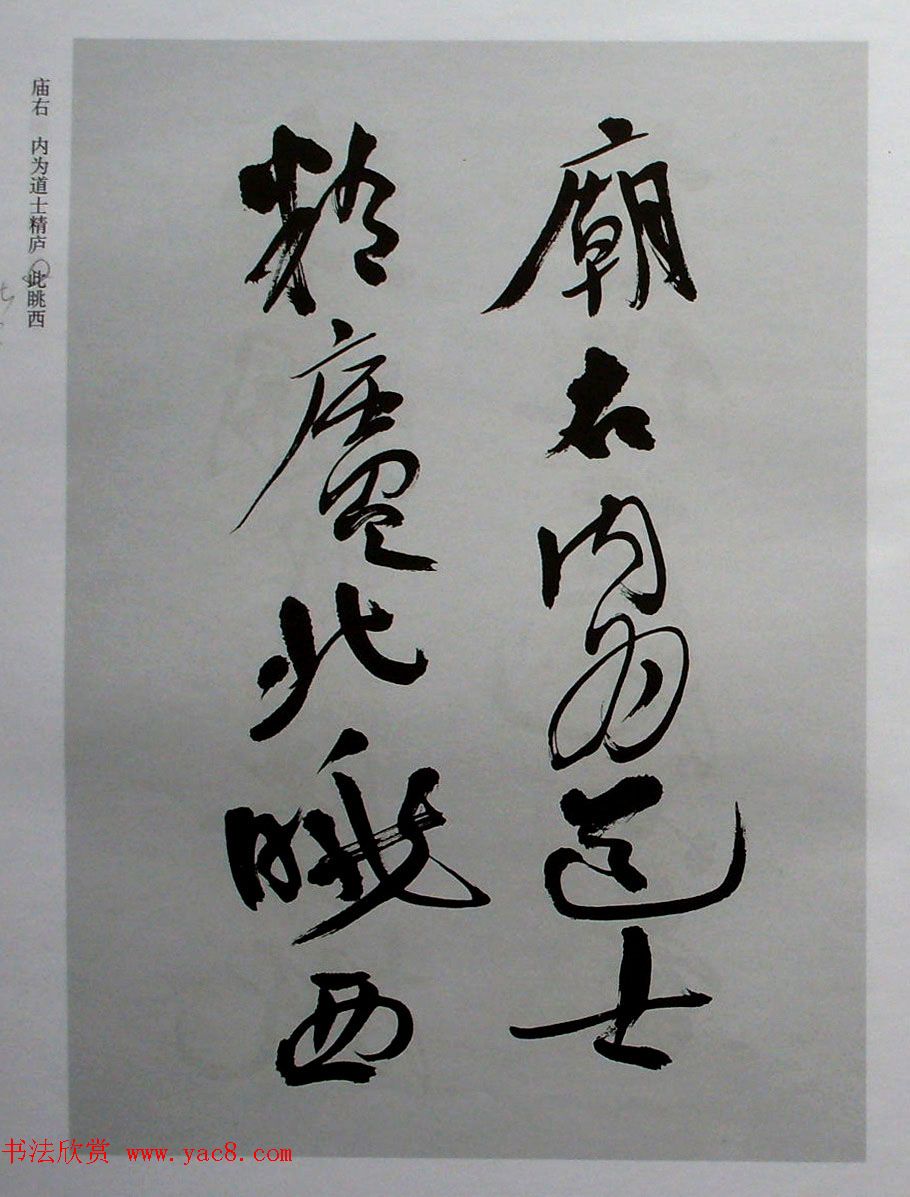 廟右内为道士
精廬北眺西
庙右 内为道士精庐 此眺西
书法欣赏 www.yac8.com